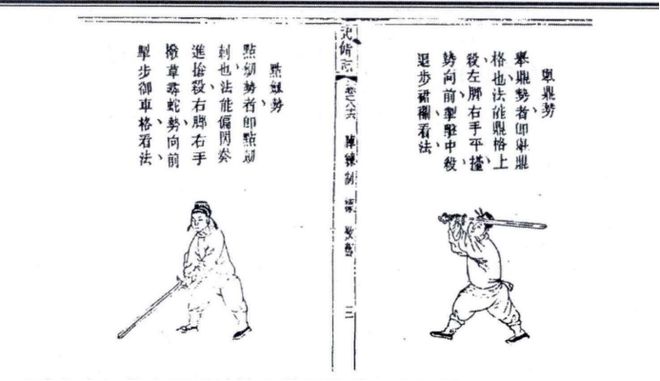 舉鼎勢
舉鼎勢者即舉鼎
格也法能鼎格上
殺左脚右手平擡
勢向前掣擊中殺
退步裙襴看法
武備志
陣練制
練
教藝
點劒勢
點劒勢者即點劒
刺也法能偏閃奏
進搶殺右脚右手
撥草尋蛇勢向前
掣步御車格看法